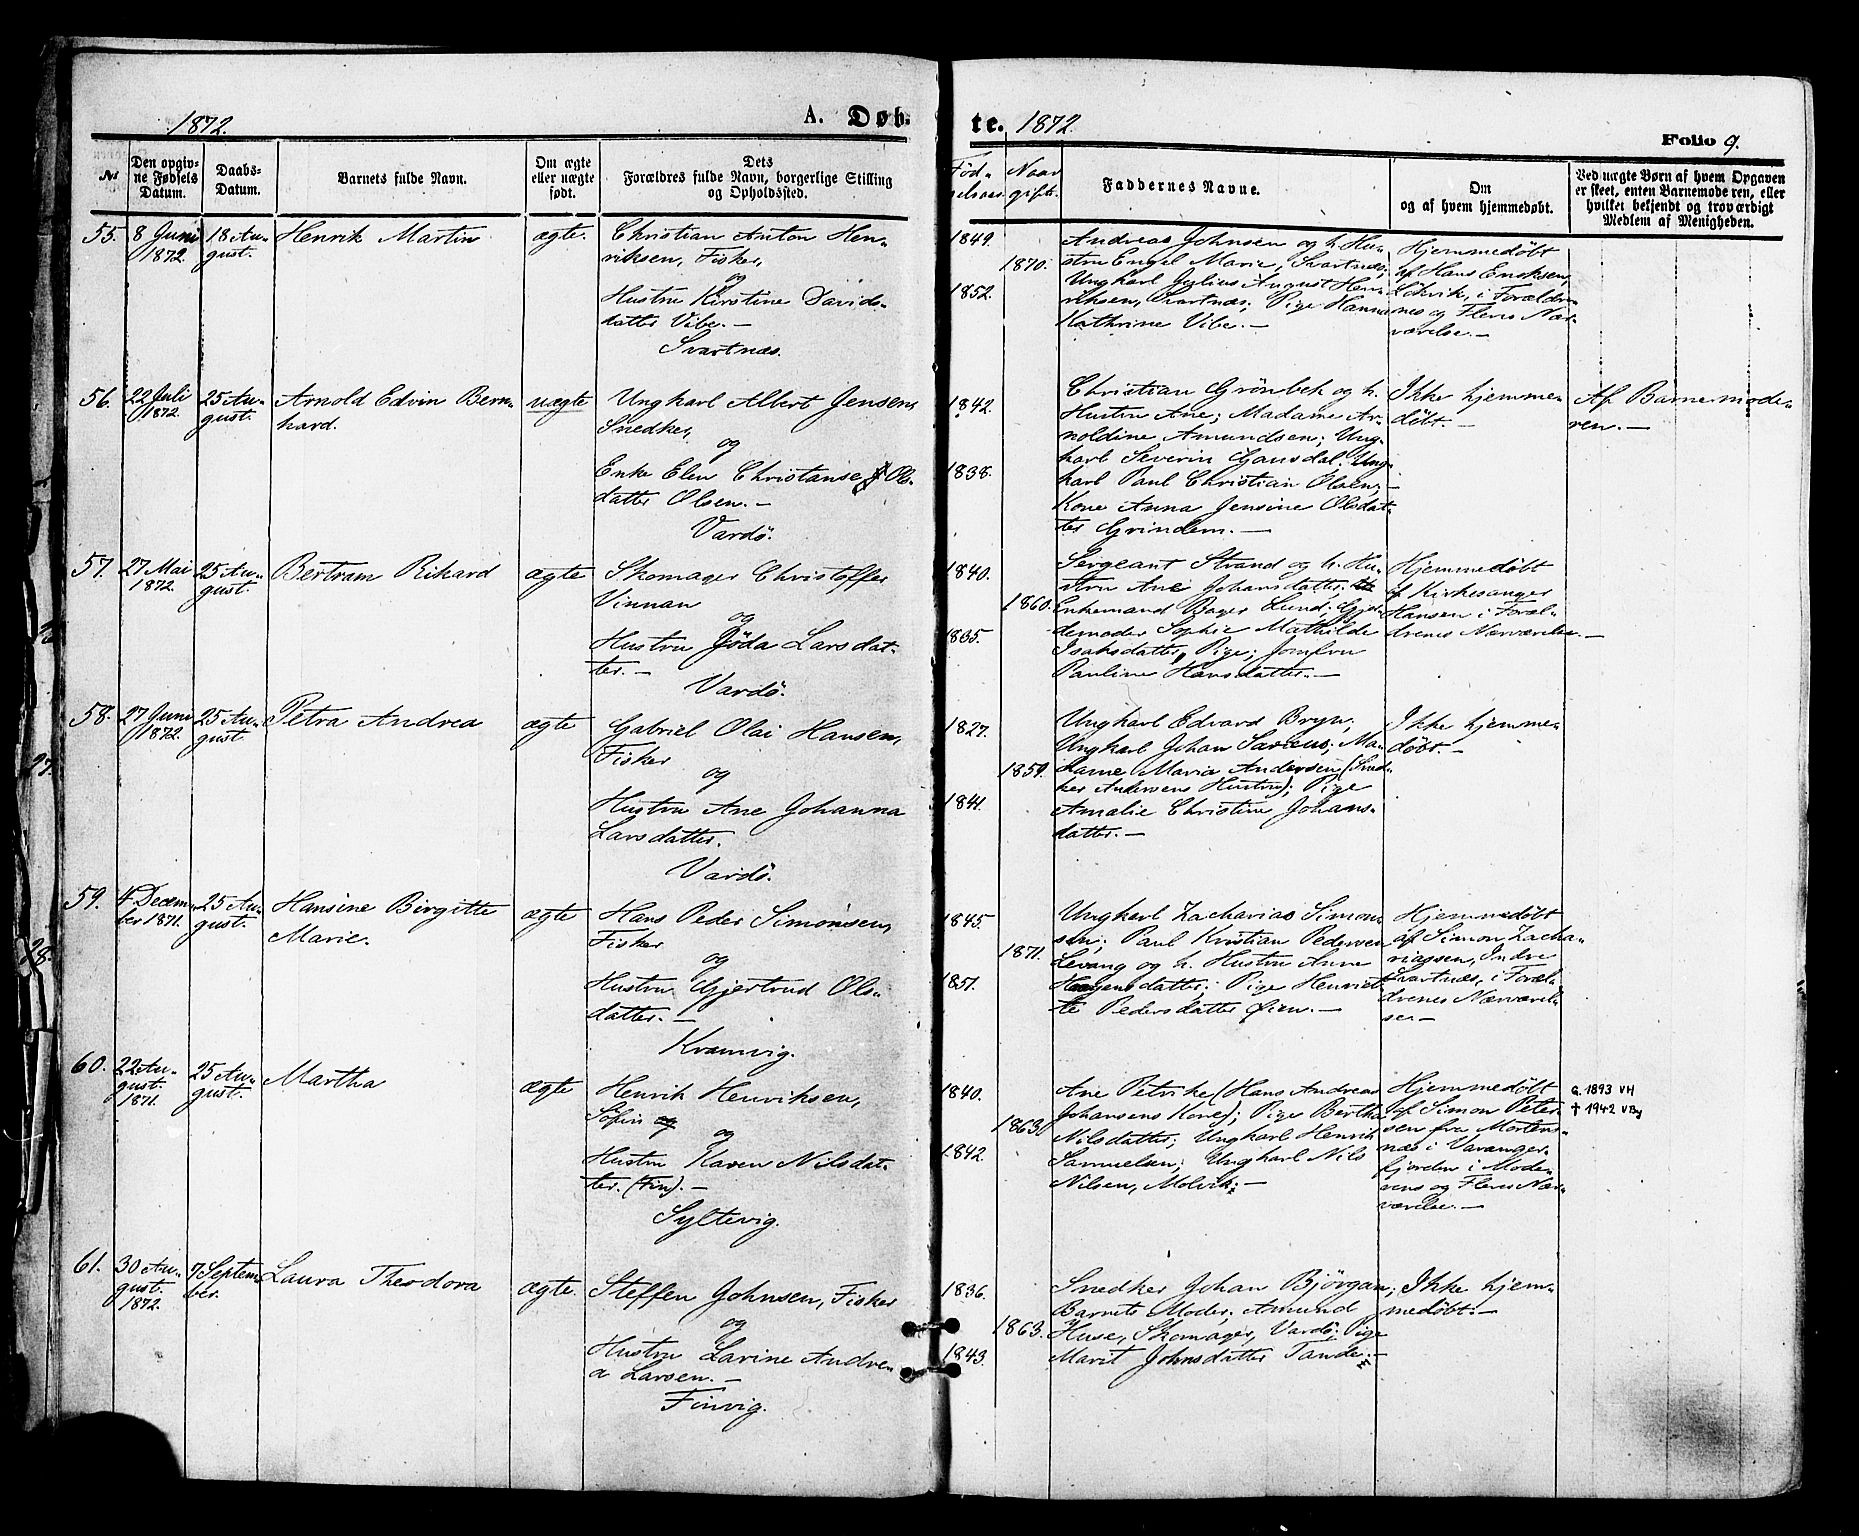 1872.
A. Døb-
te. 1872.
Folio 9.
№
Den opgiv-
ne Fødsels
Datum.
Daabs-
Datum.
Barnets fulde Navn.
Om ægte
eller uægte
født.
Dets
Forældres fulde Navn, borgerlige Stilling
og Opholdssted.
Fød-
selsaar
Naar
gifte.
Faddernes Navne.
Om
og af hvem hjemmedøbt.
Ved uægte Børn af hvem Opgaven
er skeet, enten Barnemoderen, eller
hvilket bekjendt og troværdigt
Medlem af Menigheden.
55.
8 Juni
1872.
18 Au-
gust.
Henrik Martin
ægte.
Christian Anton Hen-
riksen, Fisker,
og
Hustru Kirstine Davids-
datter Vibe.-
Svartnæs.
1849.
1870.
1852.
Andreas Johnsen og h. Hu-
stru Engel Marie, Svartnæs;
Ungkarl Julius August Hen-
riksen, Svartnæs; Pige Hanna
Kathrine Vibe.-
Hjemmedøbt
af Hans Eriksen,
i Forældre-
nes og Fleres Nær-
værelse.-
56.
22 Juli
1872.
25 Au-
gust.
Arnold Edvin Bern-
hard.
uægte
Ungkarl Albert Jensen,
Snedker,
og
Enke Elen Christanse Ols-
datter Olsen.-
Vardö.
1842.
1838.
Christian Grönbek og h.
Hustru Ane; Madame Ar-
noldine Amundsen; Ung-
karl Severin Gausdal. Ung-
karl Paul Christian Olsen;-
Kone Anna Jensine Olsdat-
ter Grindem.-
Ikke hjemme-
döbt.-
Af Barnemode-
ren.-
57.
27 Mai
1872.
25 Au-
gust.
Bertram Rikard
ægte
Skomager Christoffer
Vinnan
og
Hustru Jøda Larsdat-
ter.-
Vardö.
1840.
1860.
1835.
Sergeant Strand og h. Hu-
stru Ane Johansdatter;
Enkemand Bager Lund. Gjor-
demoder Sophie Mathilde
Isaksdatter, Pige; Jomfru
Pauline Hansdatter.-
Hjemmedøbt
af Kirkesanger
Hansen i Foræl-
drenes Nærværelse.-
58.
27 Juni
1872.
25 Au-
gust.
Petra Andrea
ægte
Gabriel Olai Hansen,
Fisker
og
Hustru Ane Johanna
Larsdatter.
Vardö.
1827.
1859.
1841.
Ungkarl Edvard Bryn;
Ungkarl Johan Sarens; Ma-
dame Maria Andersen (Sned-
ker Andersens Hustru); Pige
Amalie Christine Johans-
datter.-
Ikke hjemme-
döbt.-
59.
4 Decem-
ber 1871.
25 Au-
gust.
Hansine Birgitte
Marie.
ægte
Hans Peder Simonsen,
Fisker
og
Hustru Gjertrud Ols-
datter.-
Kramvig.
1845.
1871.
1851.
Ungkarl Zacharias Simon-
sen; Paul Kristian Pedersen
Levang og h. Hustru Anne
Haagensdatter; Pige Henriet-
te Pedersdatter Øien.-
Hjemmedøbt
af Simon Zacha-
riassen, Indre
Svartnæs, i Foræl-
drenes Nærværel-
se.-
60.
22 Au-
gust.
1871.
25 Au-
gust.
Martha
ægte
Henrik Henriksen,
Söfin
og
Hustru Karen Nilsdat-
ter. (Fin).-
Syltevig.
1840.
1863.
1842.
Ane Petrike (Hans Andreas
Johansens Kone); Pige Bertha
Nilsdatter; Ungkarl Henrik
Samuelsen; Ungkarl Nils
Nilsen, Molvik;-
Hjemmedøbt
af Simon Peter-
sen fra Mortens-
næs i Varanger-
fjorden i Mode-
rens og Fleres Nær-
værelse.-
G. 1893 VH
† 1942 V By
61.
30 Au-
gust.
1872.
7 Septem-
ber.
Laura Theodora
ægte.
Steffen Johnsen, Fisker
og
Hustru Lavine Andre-
a Larsen.-
Finvig.
1836.
1863.
1843.
Snedker Johan Bjørgan;
Barnets Moder; Amund
Huse, Skomager, Vardö. Pige
Marit Johnsdatter Tande.-
Ikke hjem-
medöbt.-
27.
28.